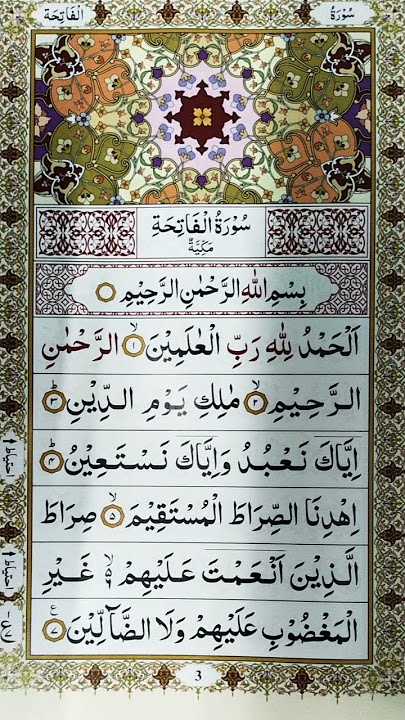 سُوْرَةُ الْفَاتِحَة
سُوْرَةُ الْفَاتِحَةِ
مَكِّيَّةٌ
بِسْمِ اللّٰهِ الرَّحْمٰنِ الرَّحِيْمِ
اَلْحَمْدُ لِلّٰهِ رَبِّ الْعٰلَمِيْنَ ۙ﴿۱﴾ الرَّحْمٰنِ
الرَّحِيْمِ ۙ﴿۲﴾ مٰلِكِ يَوْمِ الدِّيْنِ ؕ﴿۳﴾
اِيَّاكَ نَعْبُدُ وَاِيَّاكَ نَسْتَعِيْنُ ؕ﴿۴﴾
اِهْدِنَا الصِّرَاطَ الْمُسْتَقِيْمَ ۙ﴿۵﴾ صِرَاطَ
الَّذِيْنَ اَنْعَمْتَ عَلَيْهِمْ ۙ۵ غَيْرِ
الْمَغْضُوْبِ عَلَيْهِمْ وَلَا الضَّآلِّيْنَ ﴿۷﴾ ع
احتیاط
احتیاط
3